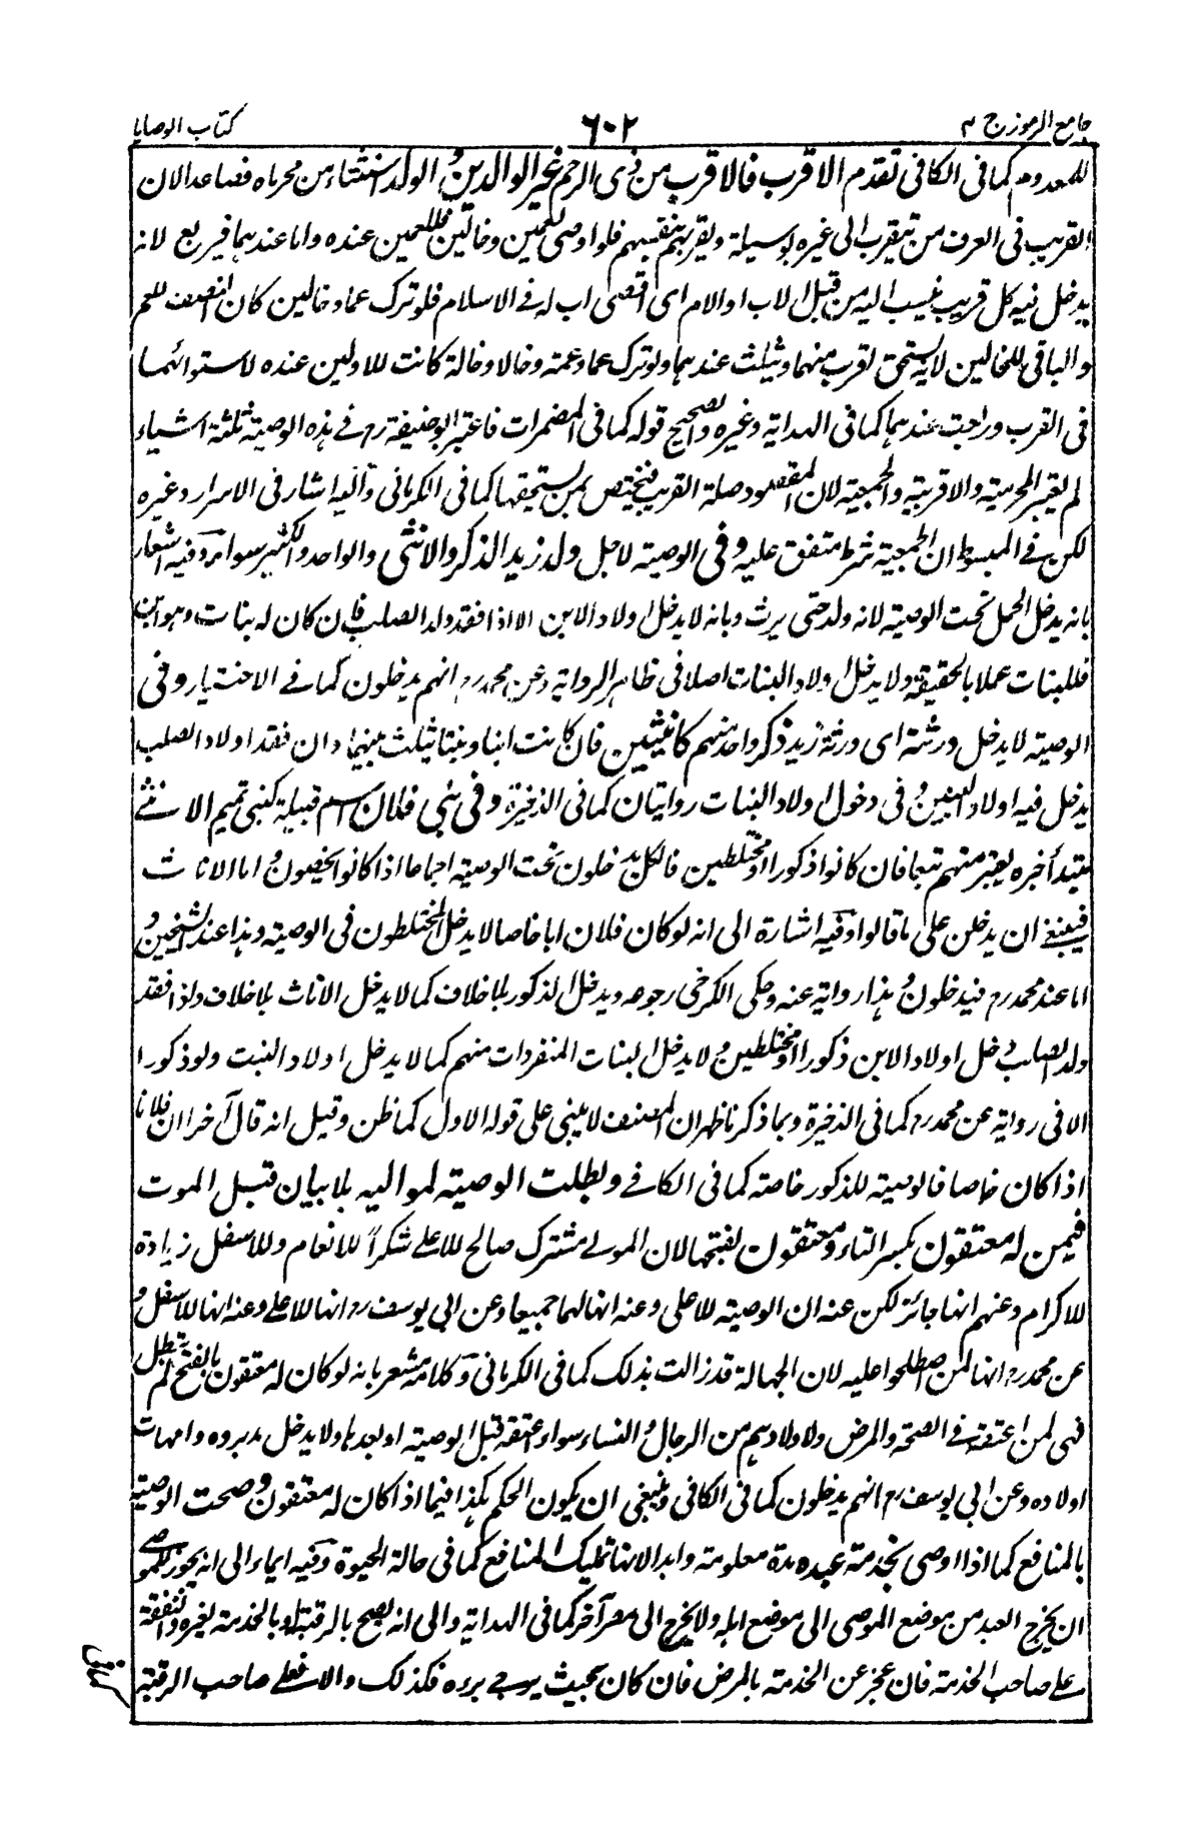 جامع الرموز ج ٢
٦٠٢
كتاب الوصايا
للمعدوم كما فى الكافى تقدم الاقرب فالاقرب من ذى الرحم غير الوالدين و الولد استثناء من محرماه فصاعدا لان
القريب فى العرف من يتقرب الى غيره بوسيلة وتقربهم بنفسهم فلو اوصى للعمين وخالين فللعمين عنده واما عندهما فيربع لانه
يدخل فيه كل قريب ينسب اليه من قبل الاب او الام اى اقصى اب له فى الاسلام فلو ترك عما وخالين كان النصف للعم
والباقى للخالين لانه يستحق لقرب منهما ويثلث عندهما ولو ترك عما وعمة وخالا وخالة كانت للاولين عنده لاستوائهما
فى القرب وراحت عندهما كما فى الهداية وغيره والصحيح قوله كما فى المضمرات فاعتبر ابو حنيفة رح فى هذه الوصية ثلثة اشياء
لم يعتبر المحرمية والاقربية والجمعية لان المقصود صلة القريب فيختص بمن يستحقها كما فى الكرمانى واليه اشار فى الاسرار وغيره
لكن فى المبسوط ان الجمعية شرط متفق عليه و فى الوصية لاجل ولد زيد الذكر والانثى والواحد والكثير سواء وفيه اشعار
بانه يدخل الحمل تحت الوصية لانه ولد حتى يرث وبانه لا يدخل اولاد الابن الا اذا فقد ولد الصلب فان كان له بنات وهو ابن
فللبنات عملا بالحقيقة ولا يدخل اولاد البنات اصلا فى ظاهر الرواية وعن محمد رح انهم يدخلون كما فى الاختيار و فى
الوصية لا يدخل ورثته اى ورثة زيد ذكر واحد منهم كانثيين فان كانت ابنا وبنتا ثلث بينهما وان فقد اولاد الصلب
يدخل فيه اولاد البنين و فى دخول اولاد البنات روايتان كما فى الذخيرة و فى بنى فلان اسم قبيلة كبنى تميم الانثى
مبتدأ خبره يعتبر منهم تبعا فان كانوا ذكورا او مختلطين فالكل يدخلون تحت الوصية اجماعا اذا كانوا يحصون و اما الاناث
فينبغى ان يدخلن على ما قالوا وفيه اشارة الى انه لو كان فلان ابا خاصا لا يدخل المختلطون فى الوصية وهذا عند الشيخين و
اما عند محمد رح فيدخلون و هذا رواية عنه وحكى الكرخى رجوعه ويدخل الذكور بلا خلاف كما لا يدخل الاناث بلا خلاف واذا فقد
ولد الصلب دخل اولاد الابن ذكورا او مختلطين و لا يدخل البنات المنفردات منهم كما لا يدخل اولاد البنت ولو ذكورا
الا فى رواية عن محمد رح كما فى الذخيرة وبما ذكرنا ظهر ان المصنف لا يبنى على قوله الاول كما ظن وقيل انه قال آخرا ان فلانا
اذا كان خاصا فالوصية للذكور خاصة كما فى الكافى و بطلت الوصية لمواليه بلا بيان قبل الموت
فيمن له معتقون بكسر التاء و معتقون بفتحها لان المولى مشترك صالح للاعلى شكرا للانعام وللاسفل زيادة
للاكرام وعنهم انها جائزة لكن عنه ان الوصية للاعلى وعنه انها لهما جميعا وعن ابى يوسف رح انها للاعلى وعنه انها للاسفل و
عن محمد رح انها لمن اصطلحوا عليه لان الجهالة قد زالت بذلك كما فى الكرمانى وكلامه مشعر بانه لو كان له معتقون بالفتح لم تبطل
فهى لمن اعتقه فى الصحة والمرض ولاولادهم من الرجال و النساء سواء اعتقه قبل الوصية او بعدها ولا يدخل مدبروه وامهات
اولاده وعن ابى يوسف رح انهم يدخلون كما فى الكافى وينبغى ان يكون الحكم هكذا فيما اذا كان له معتقون و صحت الوصية
بالمنافع كما اذا اوصى بخدمة عبده مدة معلومة وابدا لانها تمليك المنافع كما فى حالة الحيوة وفيه ايماء الى انه يجوز للموصى
ان يخرج العبد من موضع الموصى الى موضع اهله ولا يخرج الى مصر آخر كما فى الهداية والى انه يصح بالرقبة له وبالخدمة لغيره والنفقة
على صاحب الخدمة فان عجز عن الخدمة بالمرض فان كان بحيث يرجى برءه فكذلك والا فعلى صاحب الرقبة